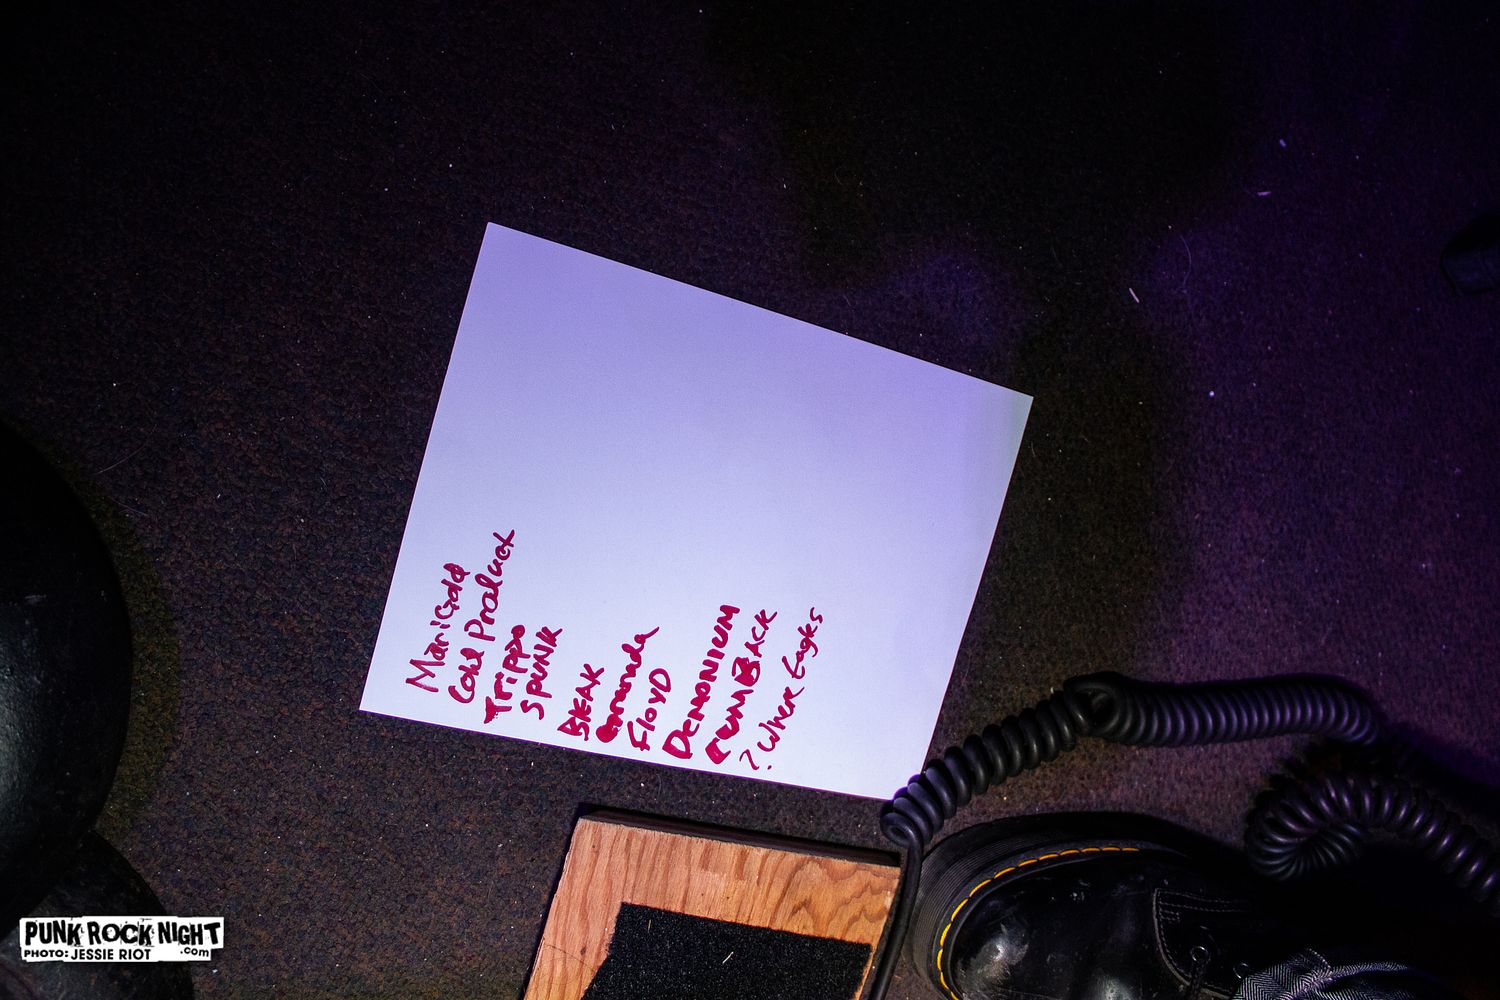 MariGold
Cold Product
Trippo
SPUNK
BEAK
Floyd
DEMONIUM
? Where Eagles
PUNK ROCK NIGHT
.com
PHOTO: JESSIE RIOT